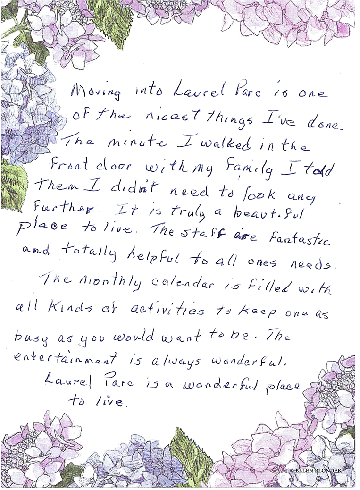 Moving into Laurel Parc is one
of the nicest things I've done.
The minute I walked in the
front door with my family I told
them I didn't need to look any
further. It is truly a beautiful
place to live. The staff are fantastic
and totally helpful to all ones needs.
The monthly calendar is filled with
all kinds of activities to keep one as
busy as you would want to be. The
entertainment is always wonderful.
Laurel Parc is a wonderful place
to live.